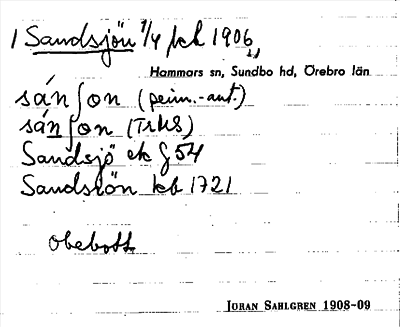 1 Sandsjön 1/4 kbl 1906
Hammars sn, Sundbo hd, Örebro län
sánʃon (peim.-ant.)
sánʃon (TrHS)
Sandsjö ek § 54
Sandsiön kb 1721
obebott
JÖRAN SAHLGREN 1908-09